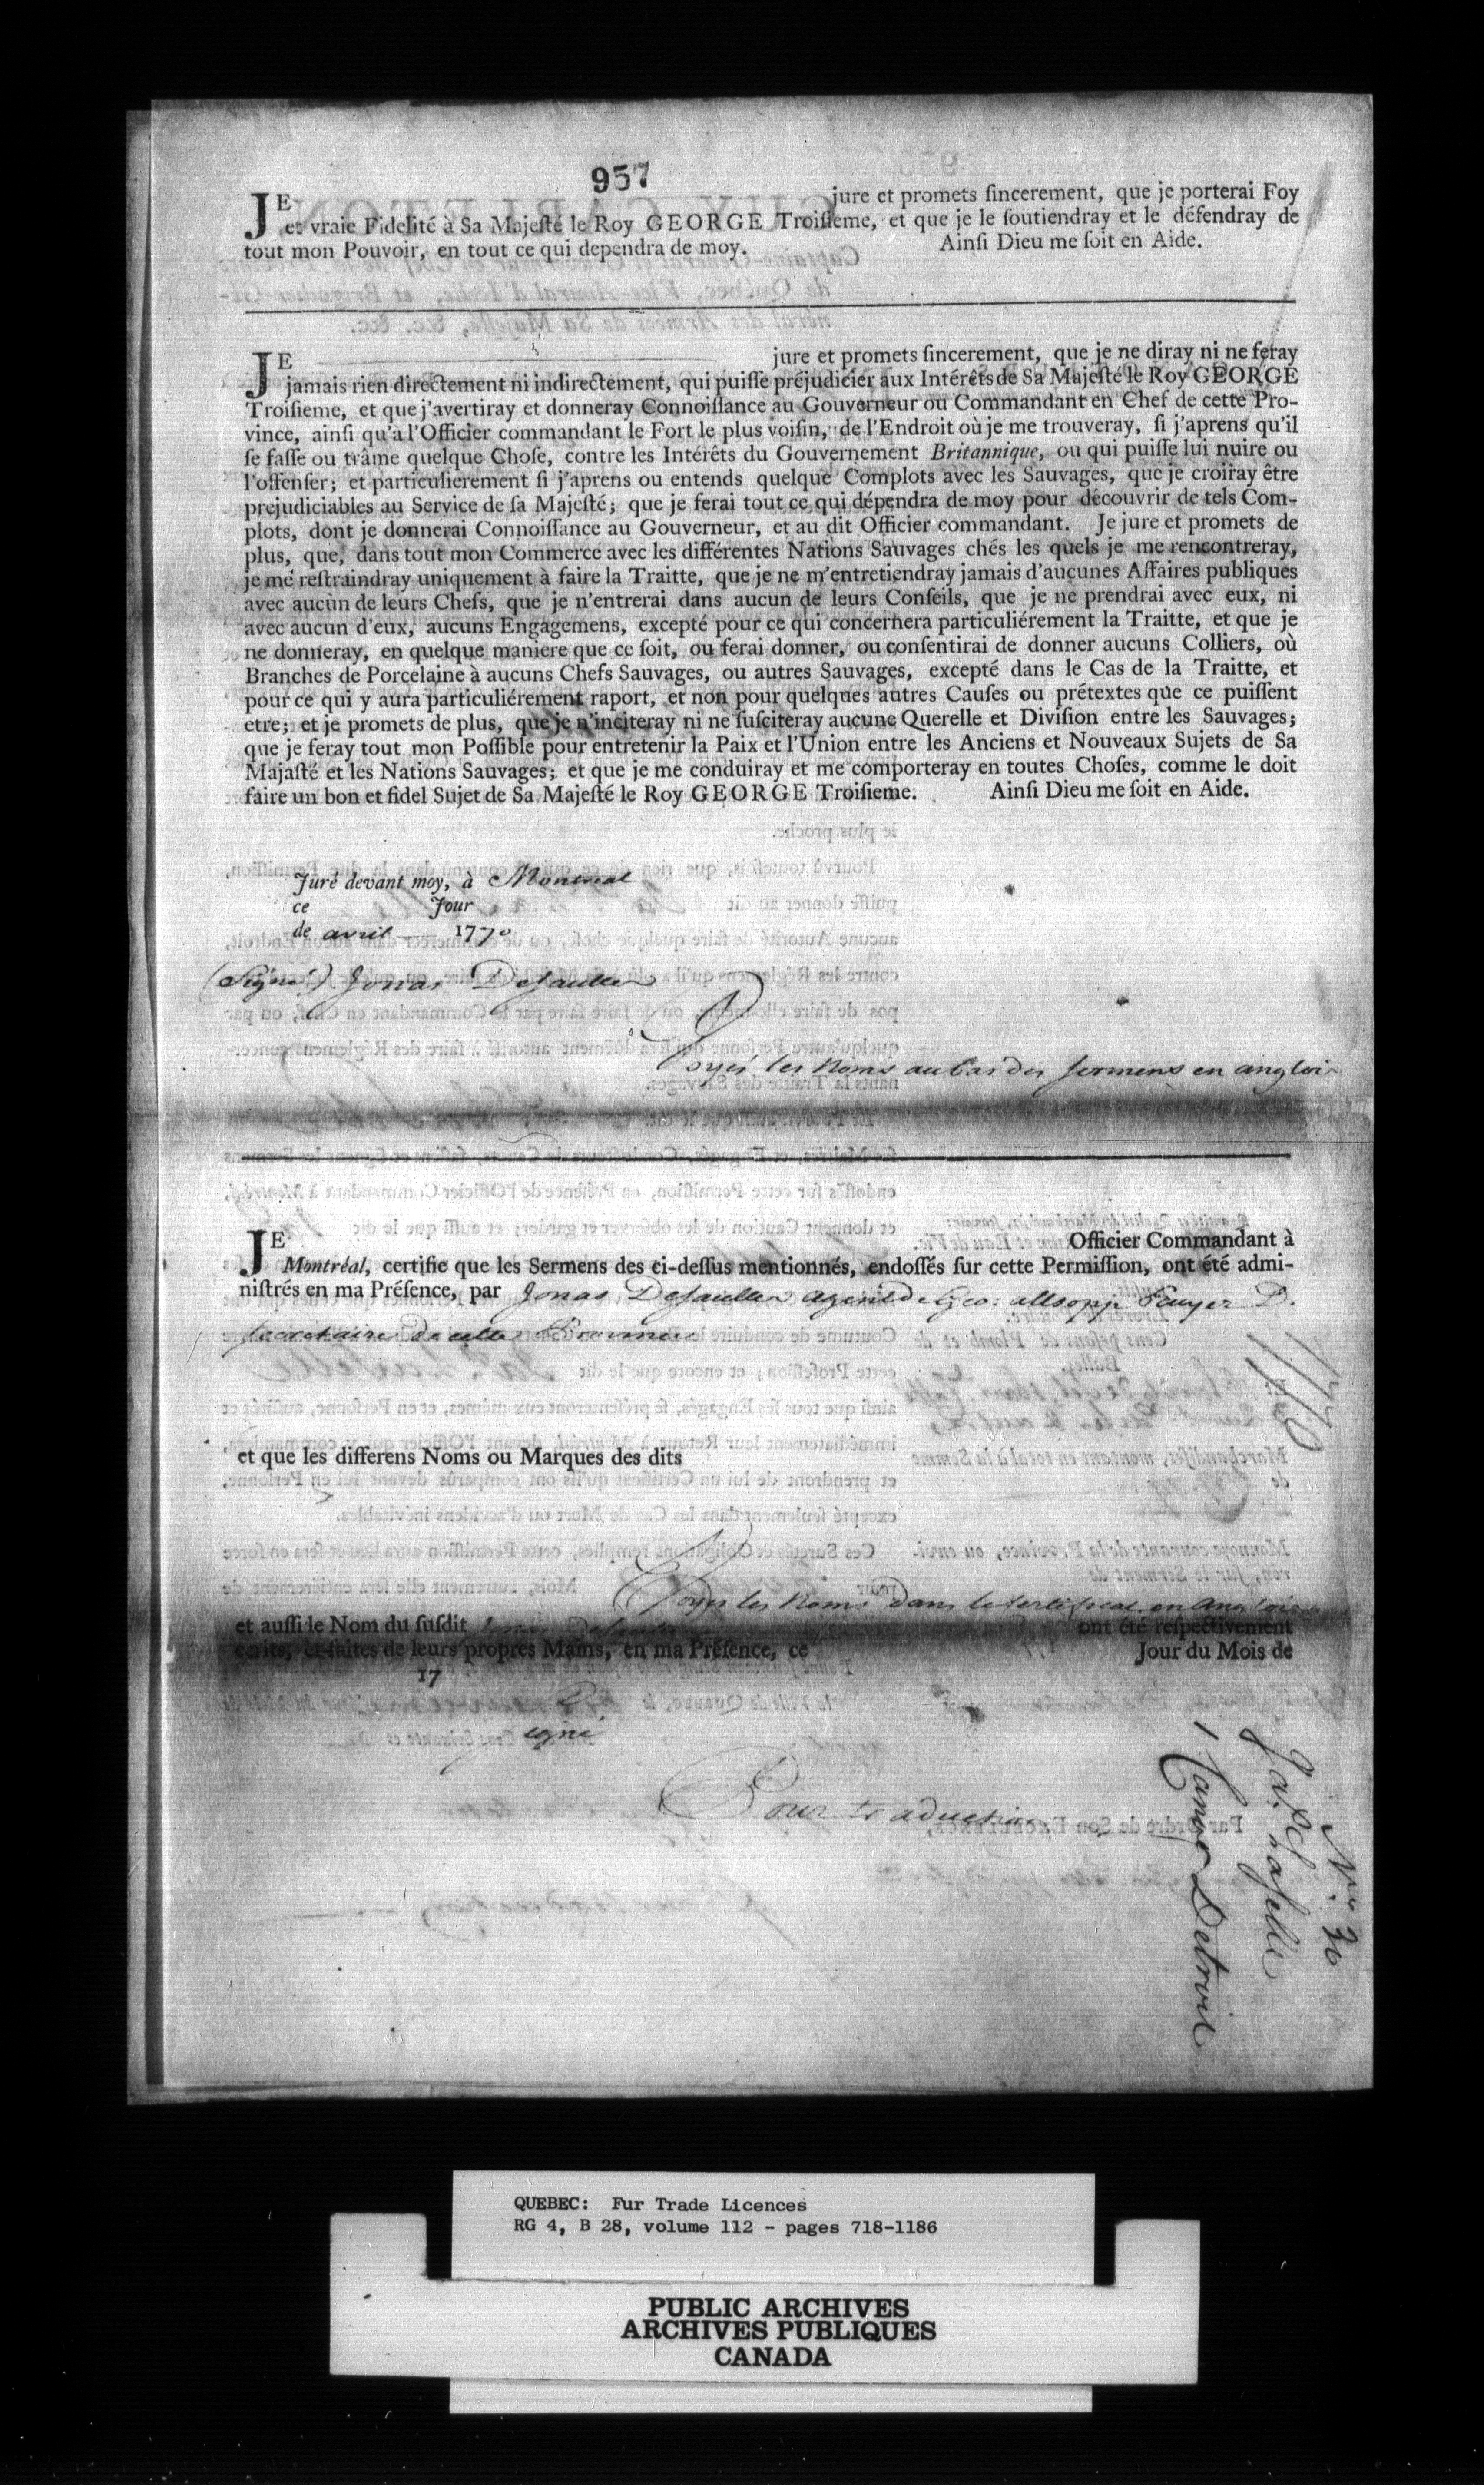 957
JE jure et promets ſincerement, que je porterai Foy
et vraie Fidelité à Sa Majeſté le Roy GEORGE Troiſieme, et que je le ſoutiendray et le défendray de
tout mon Pouvoir, en tout ce qui dependra de moy. Ainſi Dieu me ſoit en Aide.
JE jure et promets ſincerement, que je ne diray ni ne feray
jamais rien directement ni indirectement, qui puiſſe préjudicier aux Intérêts de Sa Majeſté le Roy GEORGE
Troiſieme, et que j'avertiray et donneray Connoiſſance au Gouverneur ou Commandant en Chef de cette Pro-
vince, ainſi qu'à l'Officier commandant le Fort le plus voiſin, de l'Endroit où je me trouveray, ſi j'aprens qu'il
ſe faſſe ou trâme quelque Choſe, contre les Intérêts du Gouvernement Britannique, ou qui puiſſe lui nuire ou
l'offenſer; et particulierement ſi j'aprens ou entends quelque Complots avec les Sauvages, que je croiray être
prejudiciables au Service de ſa Majeſté; que je ferai tout ce qui dépendra de moy pour découvrir de tels Com-
plots, dont je donnerai Connoiſſance au Gouverneur, et au dit Officier commandant. Je jure et promets de
plus, que, dans tout mon Commerce avec les différentes Nations Sauvages chés les quels je me rencontreray,
je me reſtraindray uniquement à faire la Traitte, que je ne m'entretiendray jamais d'aucunes Affaires publiques
avec aucun de leurs Chefs, que je n'entrerai dans aucun de leurs Conſeils, que je ne prendrai avec eux, ni
avec aucun d'eux, aucuns Engagemens, excepté pour ce qui concernera particuliérement la Traitte, et que je
ne donneray, en quelque maniere que ce ſoit, ou ferai donner, ou conſentirai de donner aucuns Colliers, où
Branches de Porcelaine à aucuns Chefs Sauvages, ou autres Sauvages, excepté dans le Cas de la Traitte, et
pour ce qui y aura particuliérement raport, et non pour quelques autres Cauſes ou prétextes que ce puiſſent
etre; et je promets de plus, que je n'inciteray ni ne ſuſciteray aucune Querelle et Diviſion entre les Sauvages;
que je feray tout mon Poſſible pour entretenir la Paix et l'Union entre les Anciens et Nouveaux Sujets de Sa
Majaſté et les Nations Sauvages; et que je me conduiray et me comporteray en toutes Choſes, comme le doit
faire un bon et fidel Sujet de Sa Majeſté le Roy GEORGE Troiſieme. Ainſi Dieu me ſoit en Aide.
Juré devant moy, à Montreal
ce Jour
de avril 1770
(Signé) Jonas Desaulles
Voyés les Noms au bas des sermens en anglois
JE Officier Commandant à
Montréal, certifie que les Sermens des ci-deſſus mentionnés, endoſſés ſur cette Permiſſion, ont été admi-
niſtrés en ma Préſence, par Jonas Desaulles agent de Geo: allsopp Ecuyer D.
Secretaire de cette Province
et que les differens Noms ou Marques des dits
Voyés les Noms dans le sertificat en anglois
et auſſi le Nom du ſuſdit Jonas Desaulles ont été reſpectivement
ecrits, et faites de leurs propres Mains, en ma Préſence, ce Jour du Mois de
17
Signé
Pour traduction
1770
No. 30
Jas. Laselle
1 Canot Detroit
QUEBEC: Fur Trade Licences
RG 4, B 28, volume 112 - pages 718-1186
PUBLIC ARCHIVES
ARCHIVES PUBLIQUES
CANADA